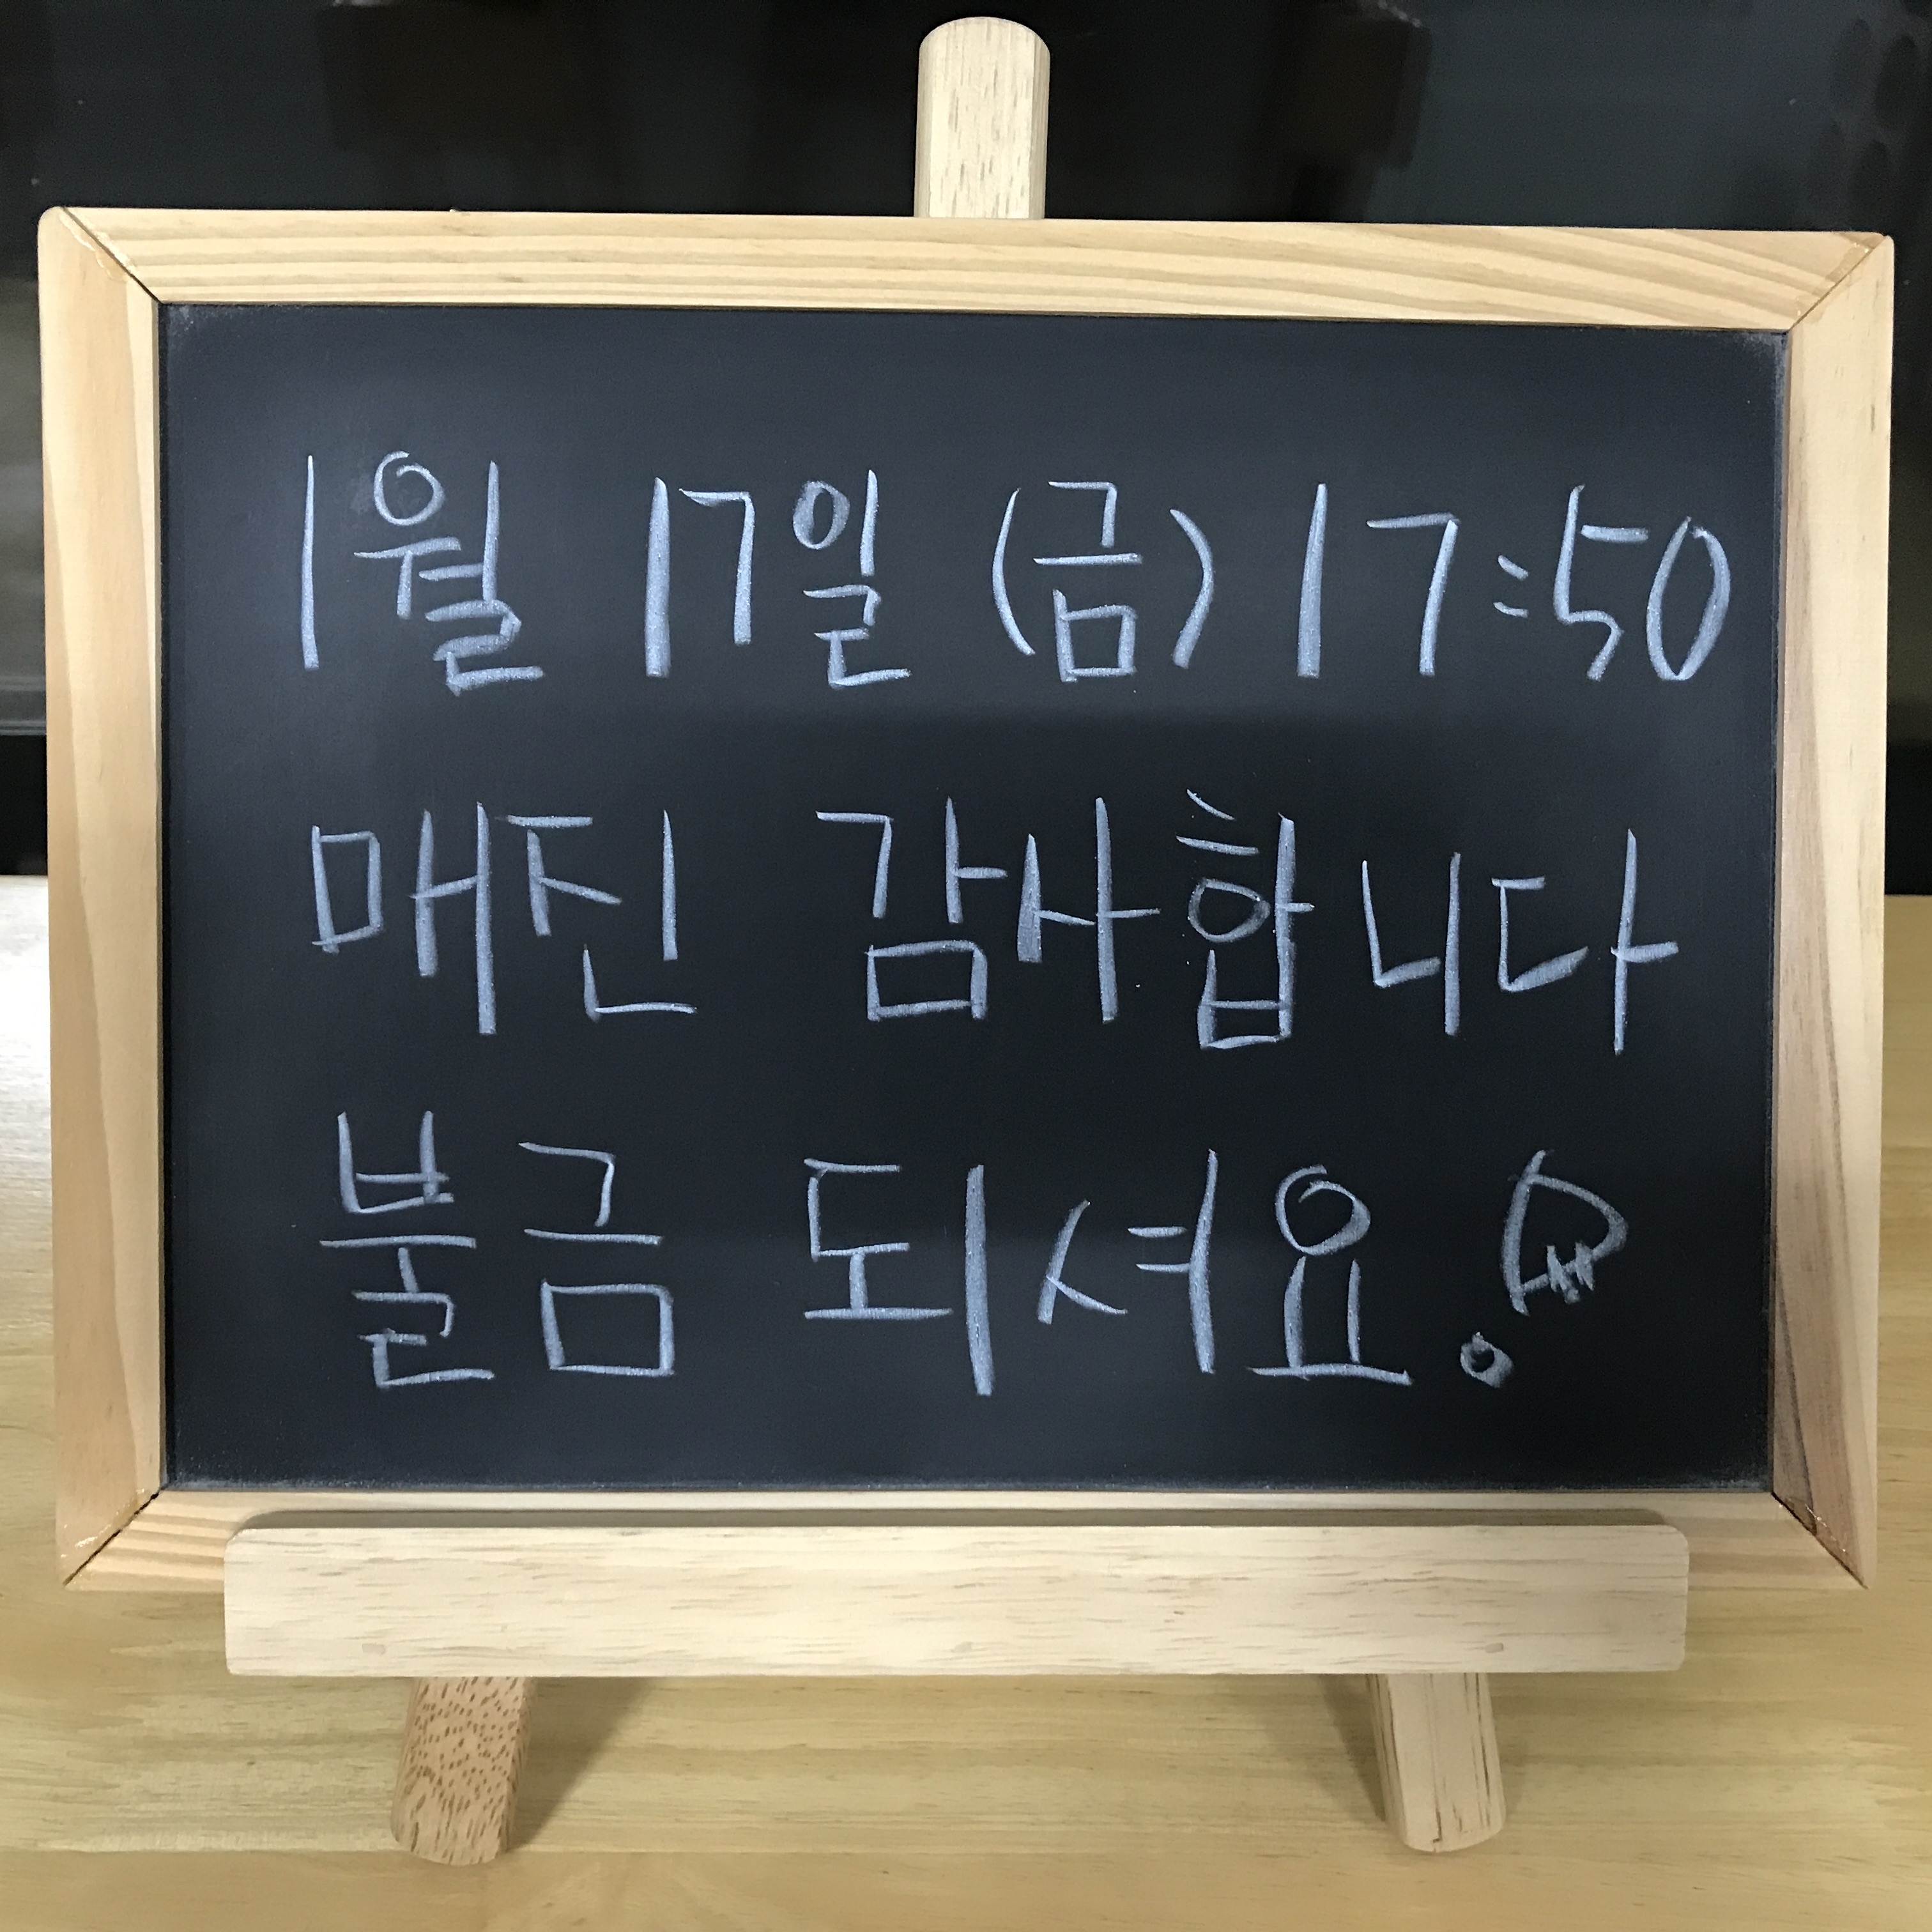 1월 17일 (금) 17:50
매진 감사합니다
불금 되셔요!